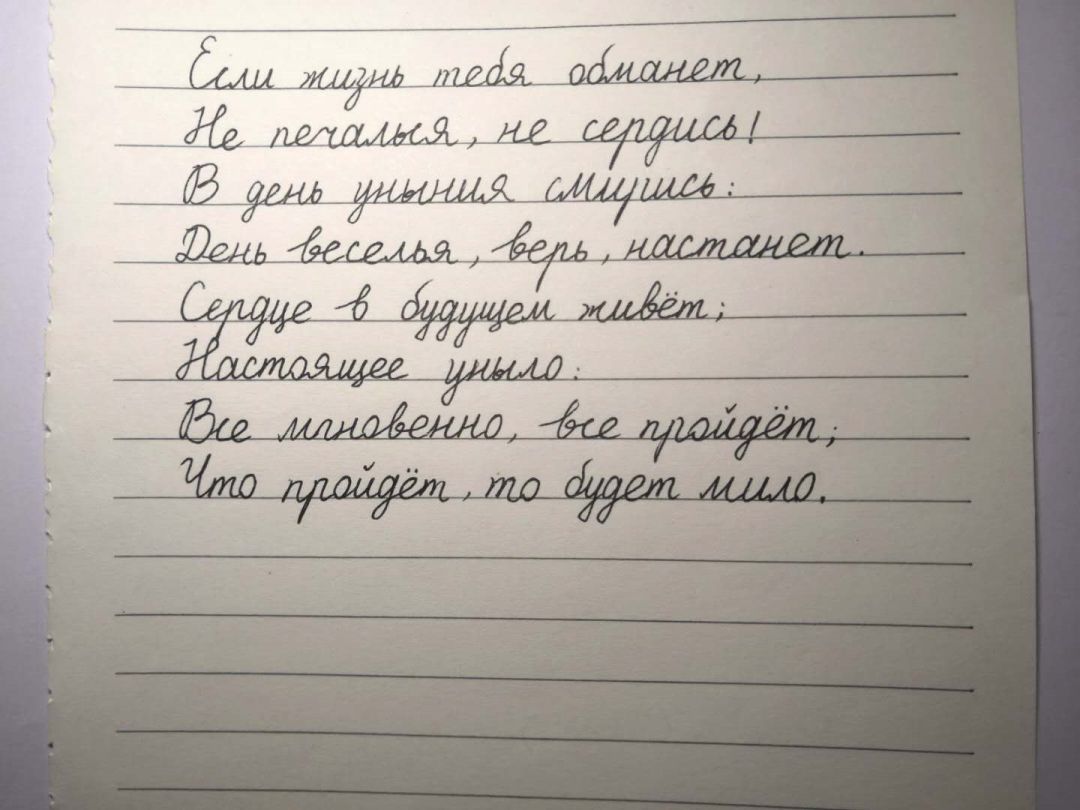 Если жизнь тебя обманет,
Не печалься, не сердись!
В день уныния смирись:
День веселья, верь, настанет.
Сердце в будущем живёт;
Настоящее уныло:
Все мгновенно, все пройдёт;
Что пройдёт, то будет мило.